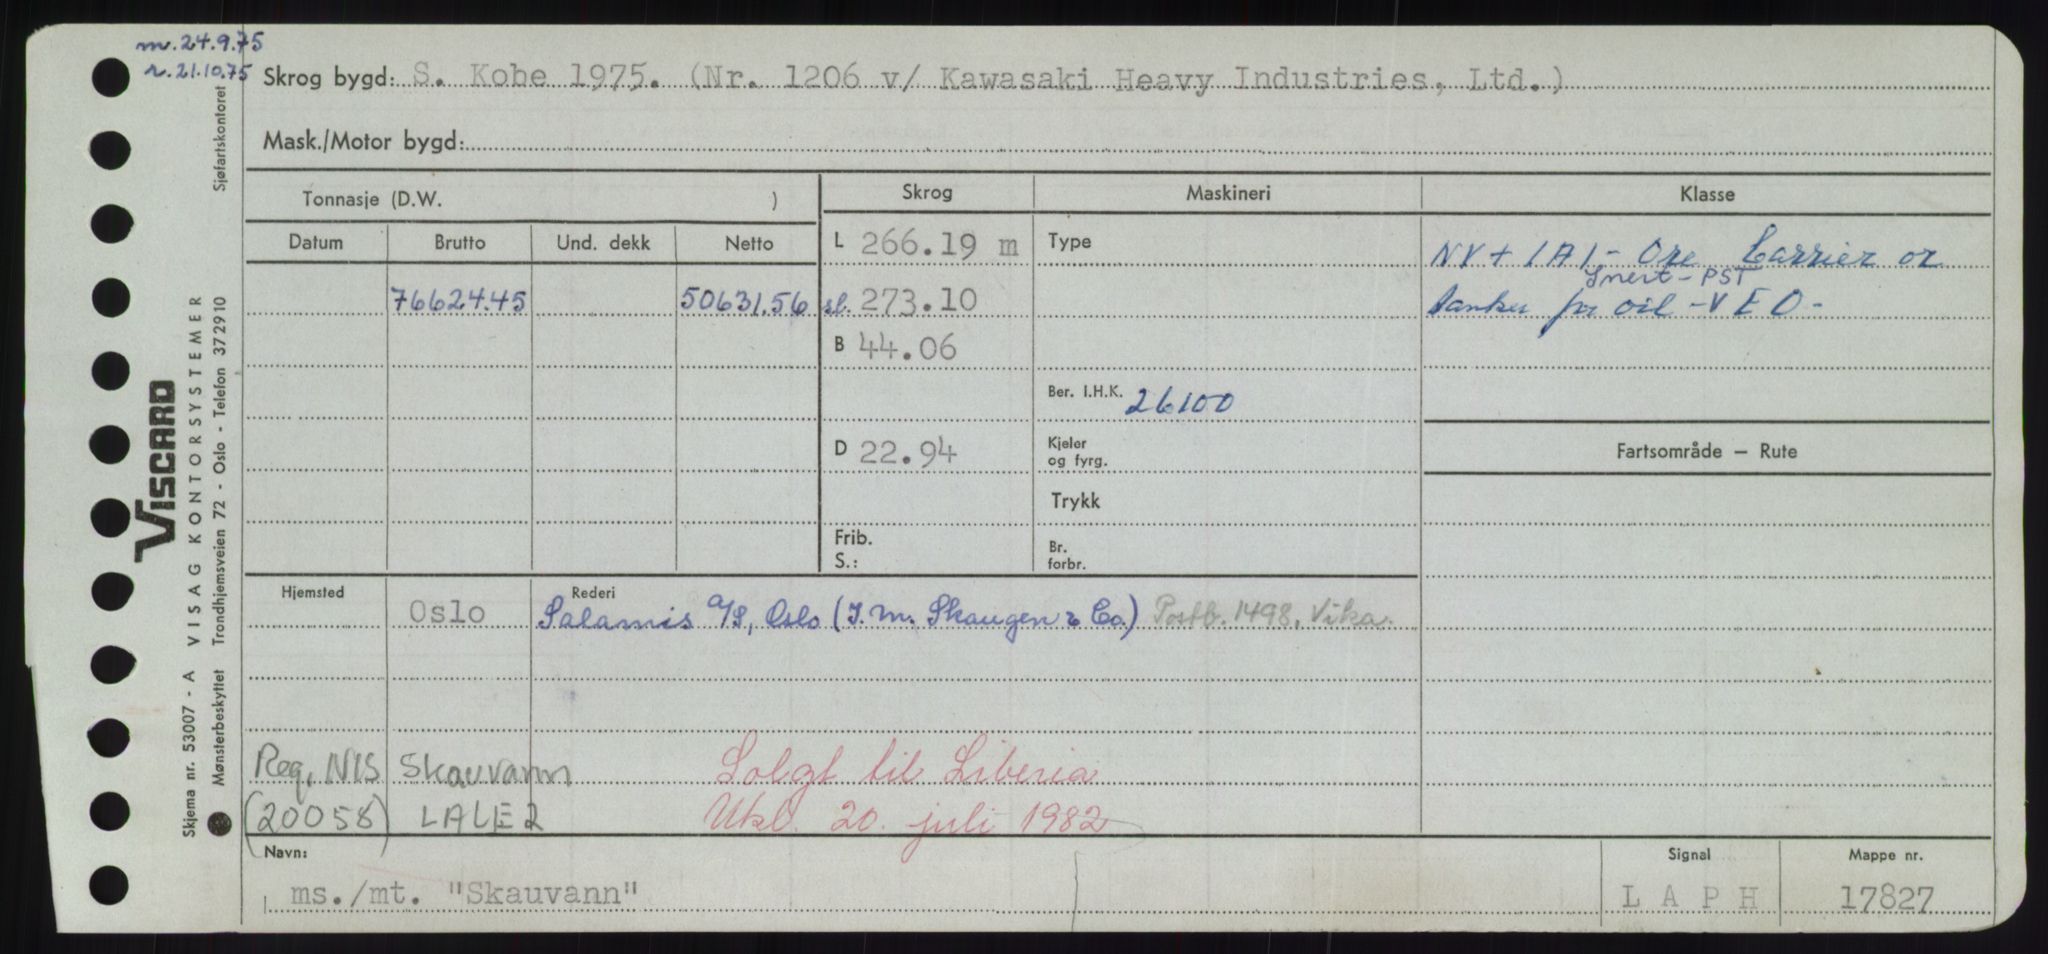 m. 24.9.75
r. 21.10.75
Skrog bygd: S. Kobe 1975. (Nr. 1206 v/ Kawasaki Heavy Industries, Ltd.)
Mask./Motor bygd:
Tonnasje (D.W. )
Skrog
Maskineri
Klasse
Datum
Brutto
Und. dekk
Netto
L 266.19 m
Type
NV + 1A1 - Ore Carrier or
Inert - PST
tanker for oil - V E O -
76624.45
50631.56
sl. 273.10
B 44.06
Ber. I.H.K. 26100
D 22.94
Kjeler
og fyrg.
Fartsområde — Rute
Trykk
Frib.
S.:
Br.
forbr.
Hjemsted
Oslo
Rederi
Salamis A/S, Oslo (I. M. Skaugen & Co.) Postb. 1498, Vika.
Reg. NIS Skauvann
Solgt til Liberia
(20058) LALE2
Utkl. 20. juli 1982
Navn:
ms./mt. "Skauvann"
Signal
L A P H
Mappe nr.
17827
VISCARD
Skjema nr. 53007 - A VISAG KONTORSYSTEMER
Mønsterbeskyttet Trondhjemsveien 72 - Oslo - Telefon 372910 Sjøfartskontoret